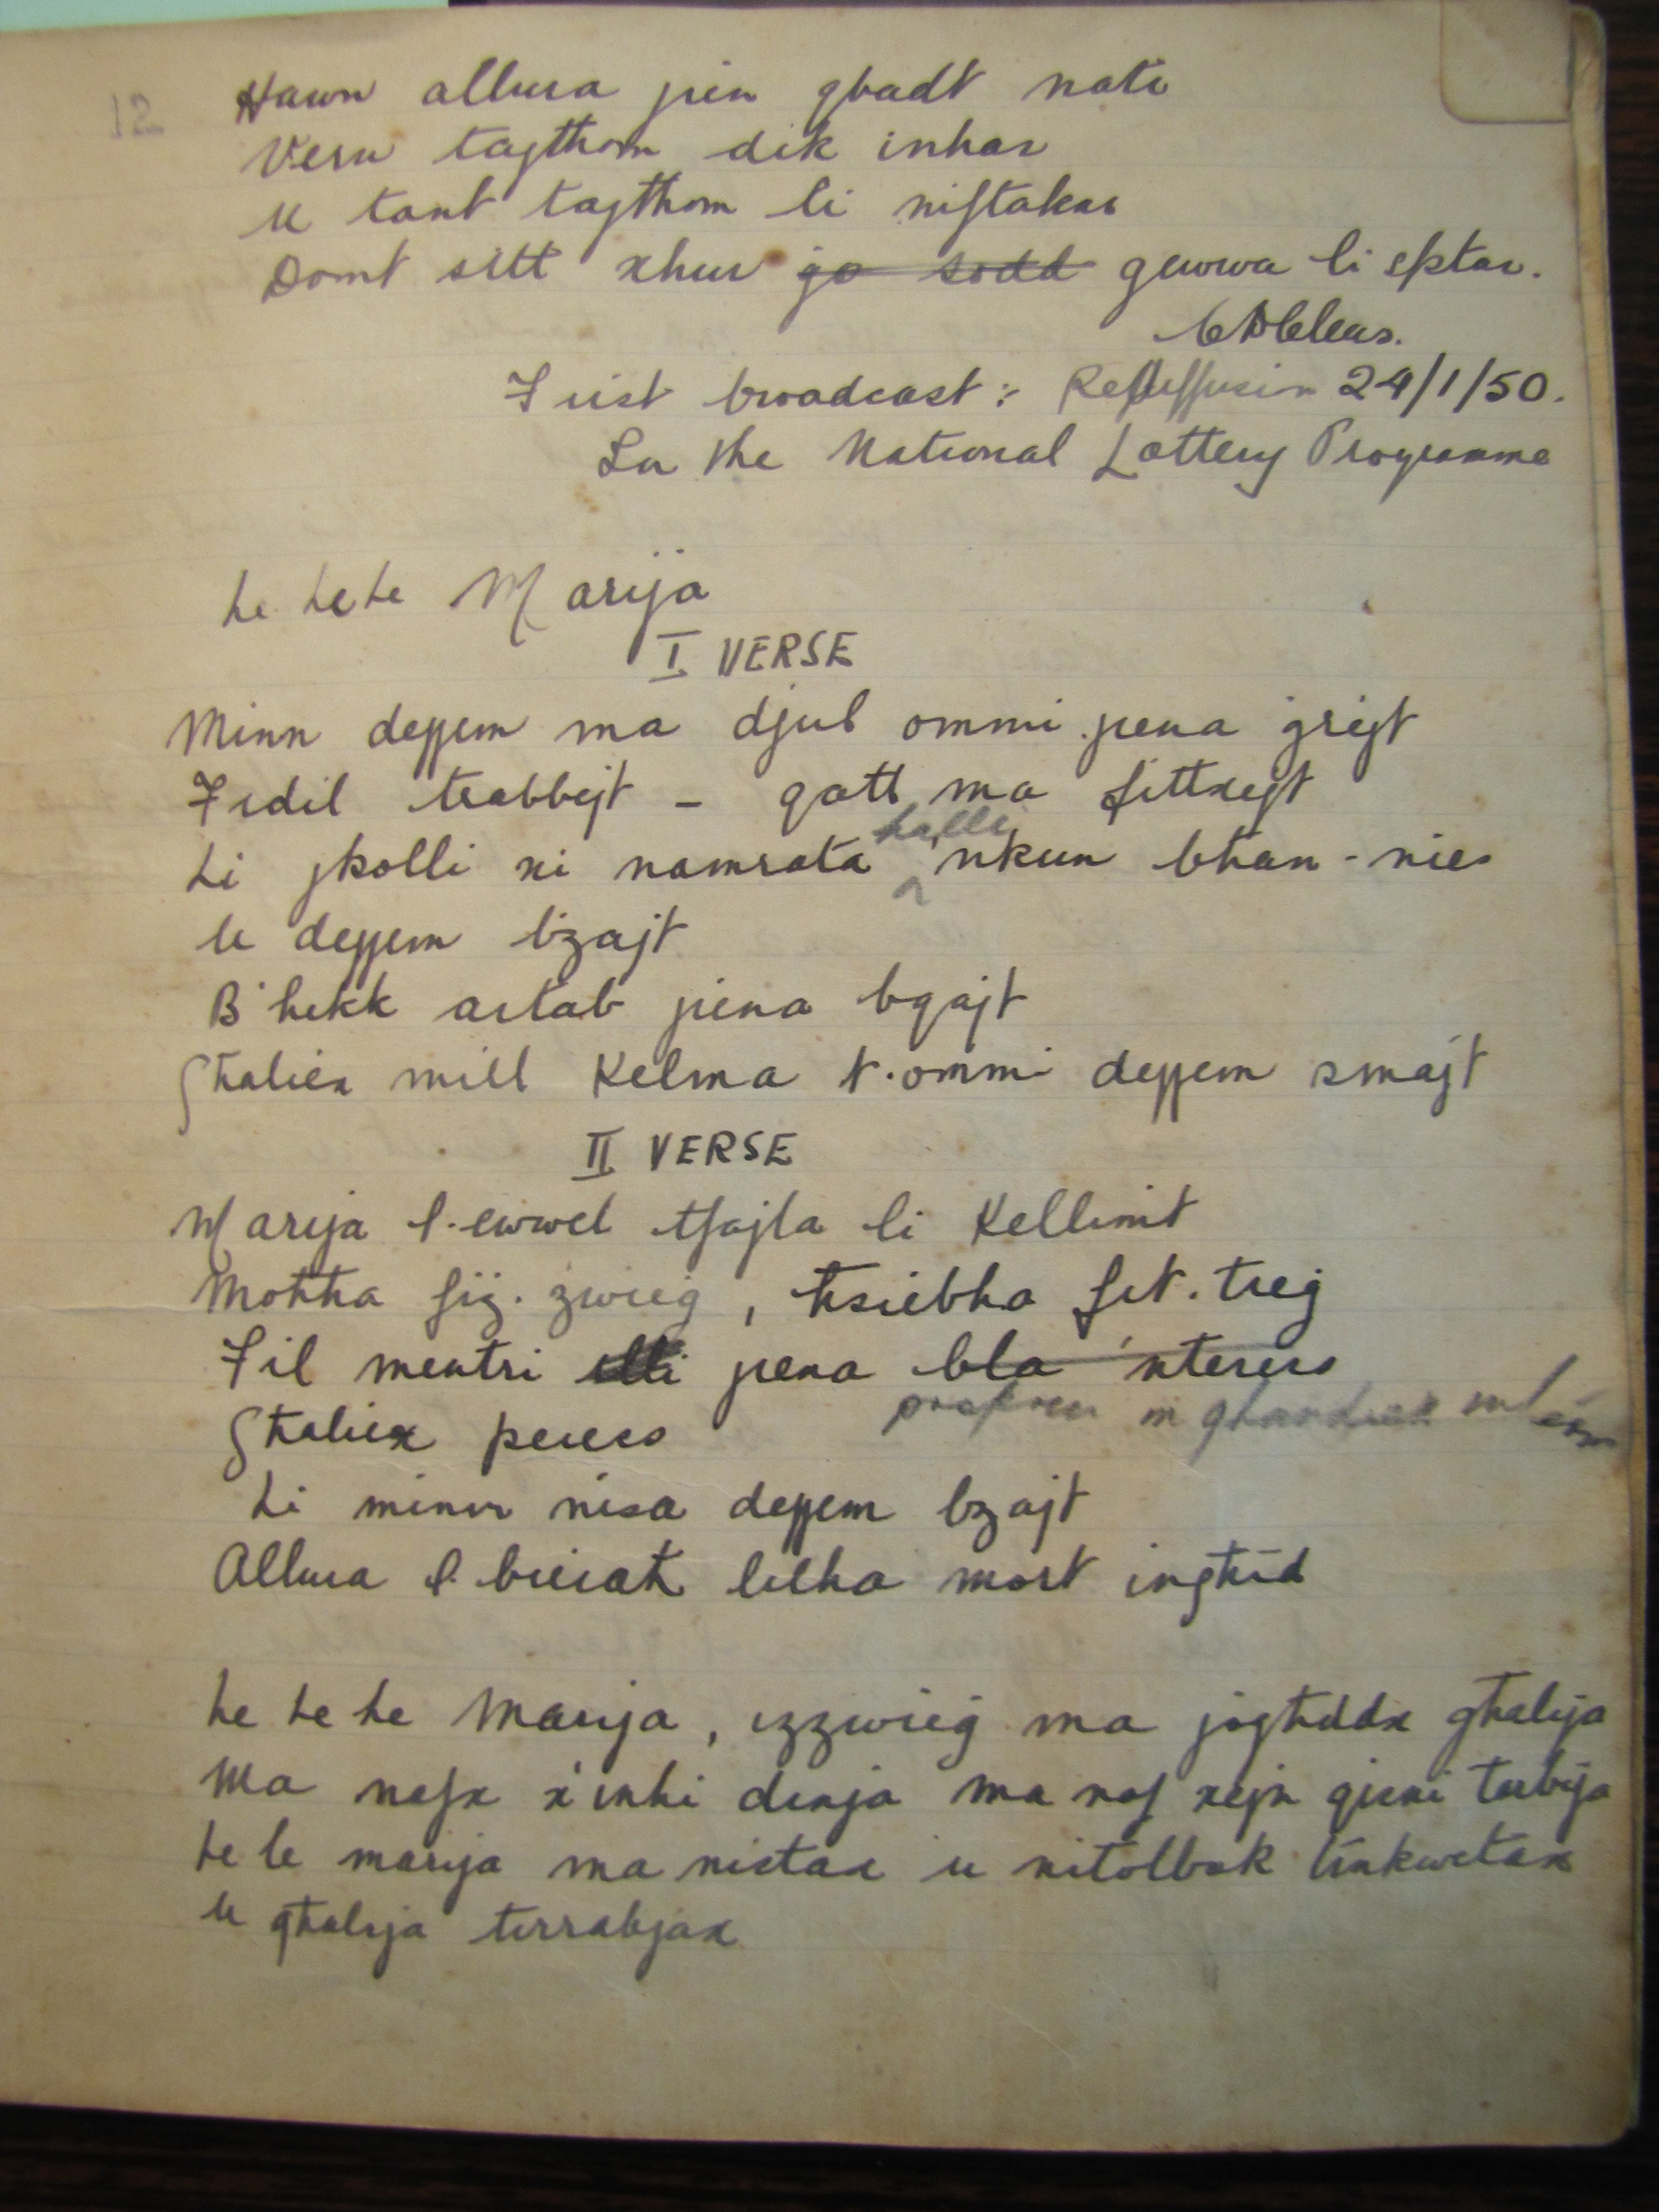 12
Hawn allura jien qbadt nati
Veru tajthom dik inhar
U tant tajthom li niftakar
Domt sitt xhur ġo sodd gewwa li sptar.
First broadcast: Rediffusion 24/1/50.
In the National Lottery Programme
He he he Marija
I VERSE
Minn dejjem ma djul ommi jiena ġrejt
Fidil trabbejt - qatt ma fittxejt
Li jkolli xi namrata ħalli nkun bħan-nies
U dejjem bzajt
B'hekk artab jiena bqajt
Għaliex mill kelma t.ommi dejjem smajt
II VERSE
Marija l.ewwel tfajla li kellimt
Moħħa fiż.żwieġ, ħsiebha fit.tieġ
Fil mentri illi jiena bla 'nteress
Għaliex peress
Li minn nisa dejjem bzajt
Allura l.bieraħ lilha mort ingħid
He he he Marija, iżżwieġ ma jogħddx għalija
Ma nafx x'inhi dinja ma naf xejn qieni tarbija
He he marija ma nistax u nitolbok tinkwetax
U għalija terrabjax